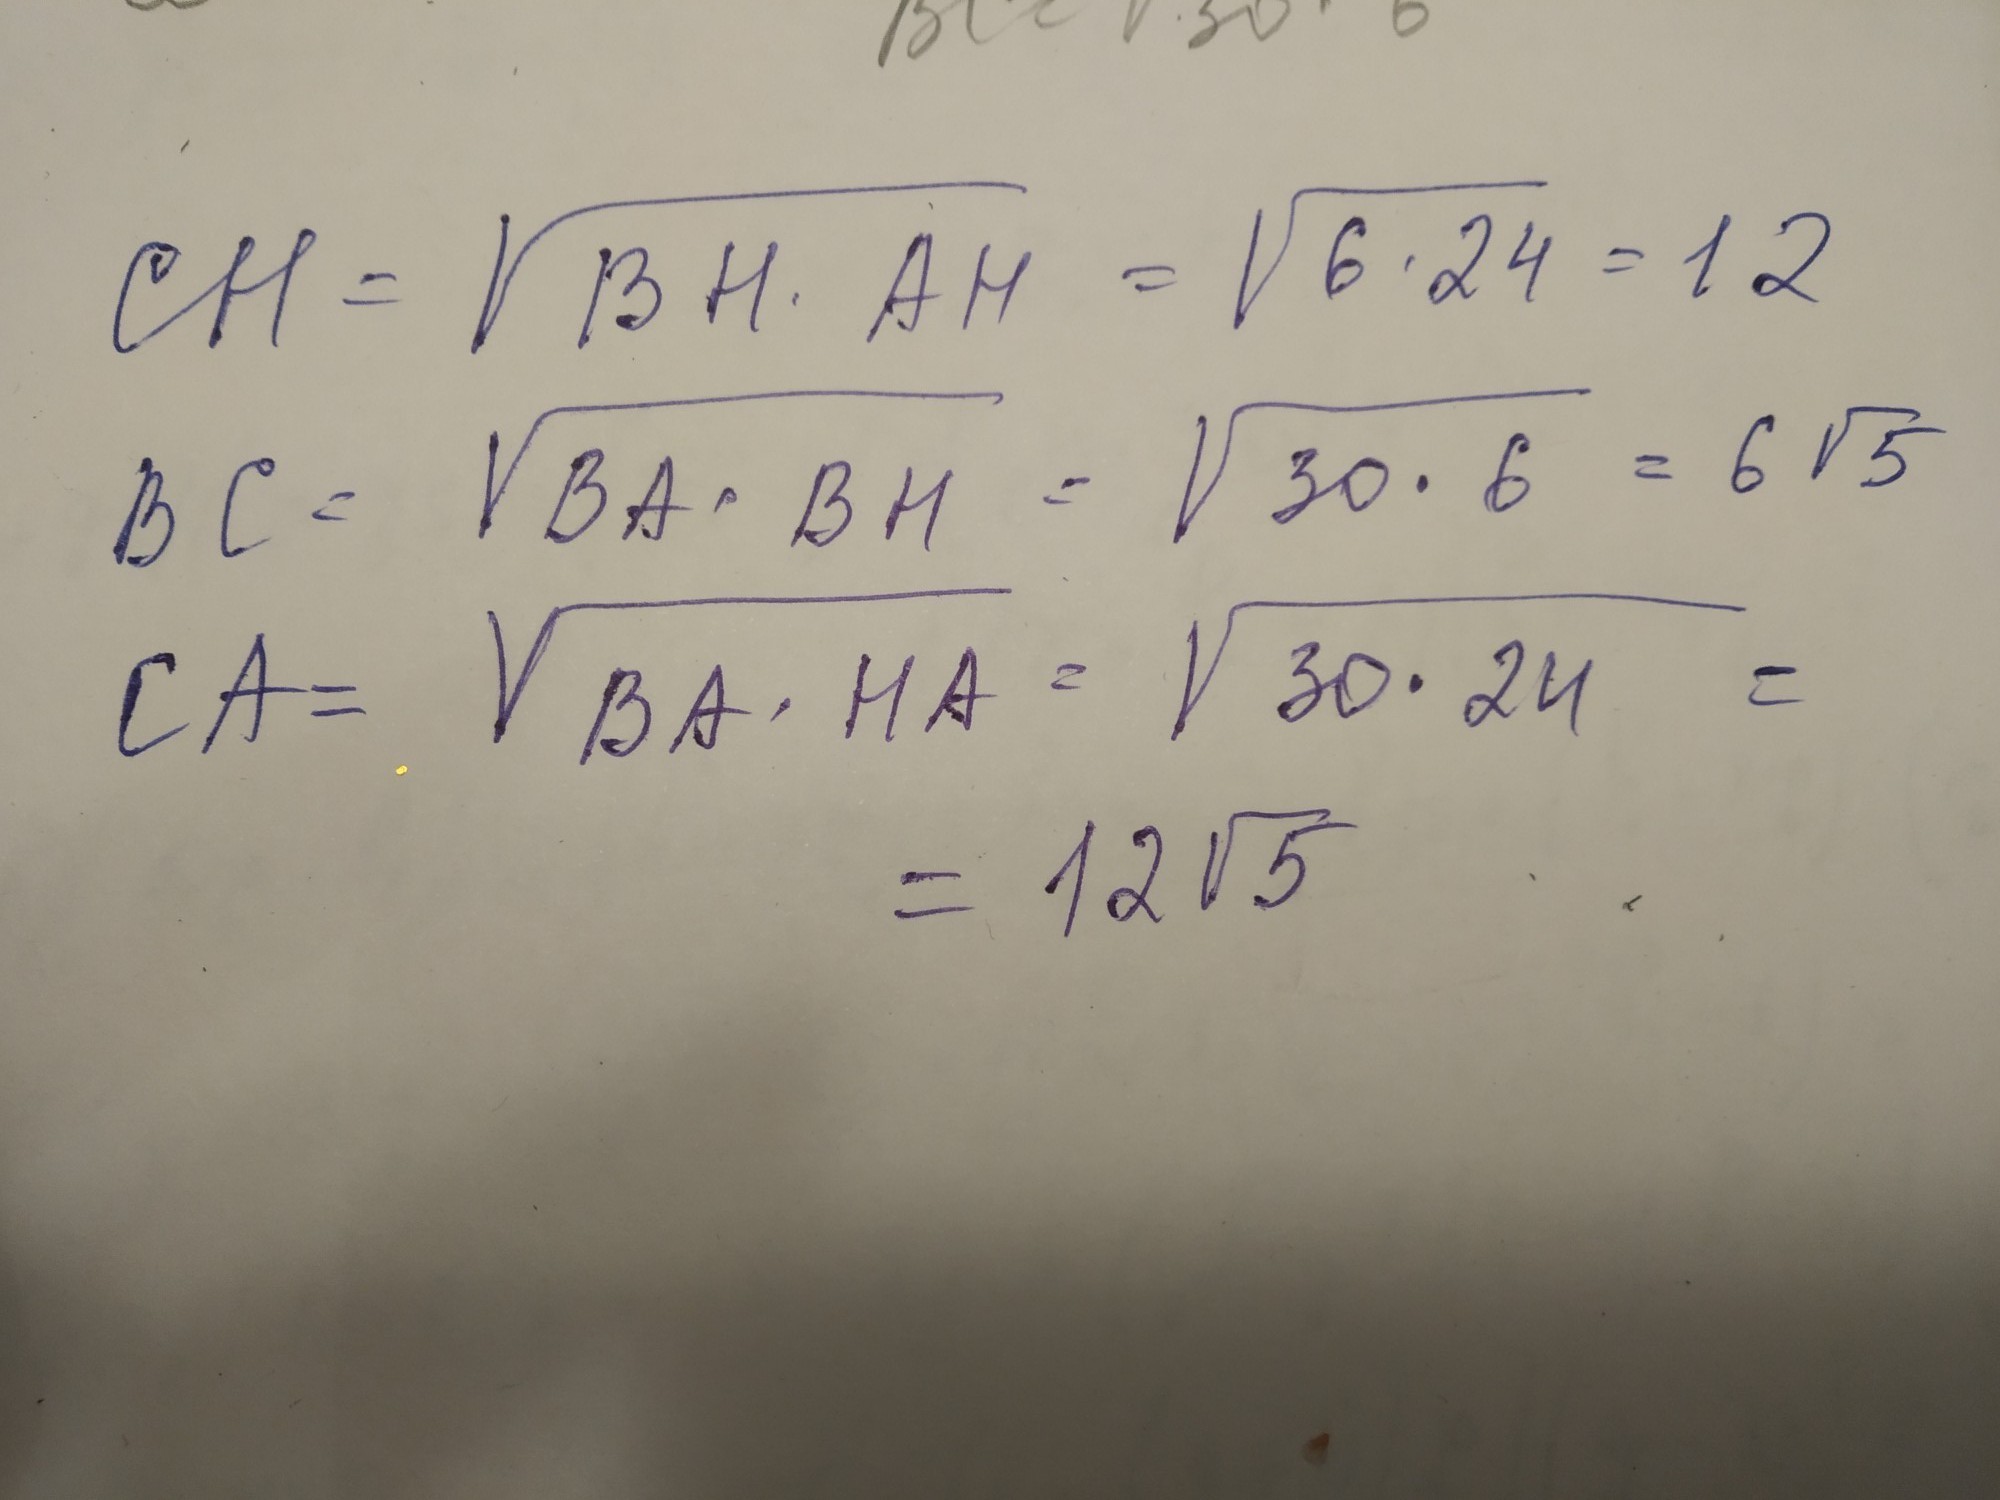 BC = √30 · 6
CH = √BH · AH = √6 · 24 = 12
BC = √BA · BH = √30 · 6 = 6√5
CA = √BA · HA = √30 · 24 =
= 12√5